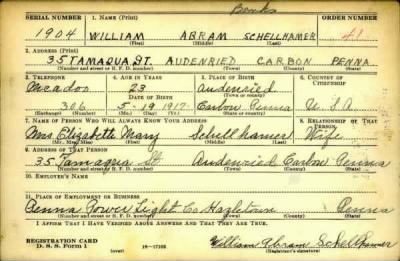 Banks
SERIAL NUMBER 1. NAME (Print) ORDER NUMBER
1904 WILLIAM ABRAM SCHELLHAMER
(First) (Middle) (Last)
2. ADDRESS (Print)
35 TAMAQUA ST. AUDENRIED CARBON PENNA
(Number and street or R. F. D. number) (Town) (County) (State)
3. TELEPHONE 4. AGE IN YEARS 5. PLACE OF BIRTH 6. COUNTRY OF CITIZENSHIP
McAdoo 23 Audenried
DATE OF BIRTH (Town or county)
306 5-19-1917 Carbon Penna U.S.A
(Exchange) (Number) (Mo.) (Day) (Yr.) (State or country)
7. NAME OF PERSON WHO WILL ALWAYS KNOW YOUR ADDRESS 8. RELATIONSHIP OF THAT PERSON
Mrs Elizabeth Mary Schellhamer Wife
(Mr., Mrs., Miss) (First) (Middle) (Last)
9. ADDRESS OF THAT PERSON
35 Tamaqua St Audenried Carbon Penna
(Number and street or R. F. D. number) (Town) (County) (State)
10. EMPLOYER'S NAME
11. PLACE OF EMPLOYMENT OR BUSINESS
Penna Power Light Co Hazletown Penna
(Number and street or R. F. D. number) (Town) (County) (State)
I AFFIRM THAT I HAVE VERIFIED ABOVE ANSWERS AND THAT THEY ARE TRUE.
REGISTRATION CARD
D. S. S. Form 1 (over) 16—17105
William Abram Schellhamer
(Registrant's signature)